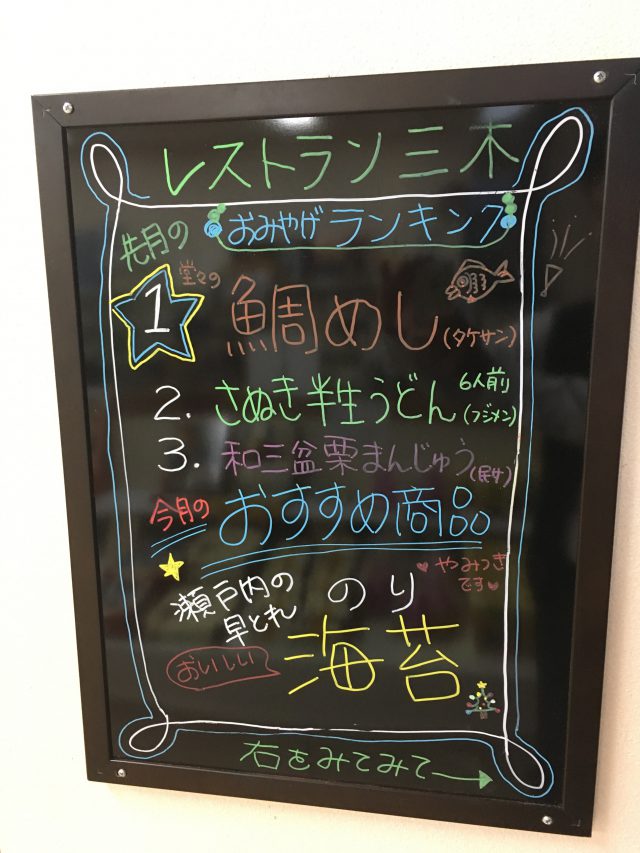 レストラン三木
先月の おみやげランキング
1 堂々の 鯛めし(タケサン)
2. さぬき半生うどん 6人前(フジメン)
3. 和三盆栗まんじゅう(民サ)
今月の おすすめ商品
瀬戸内の
早とれ
のり
海苔
やみつき
です
おいしい
右をみてみて→